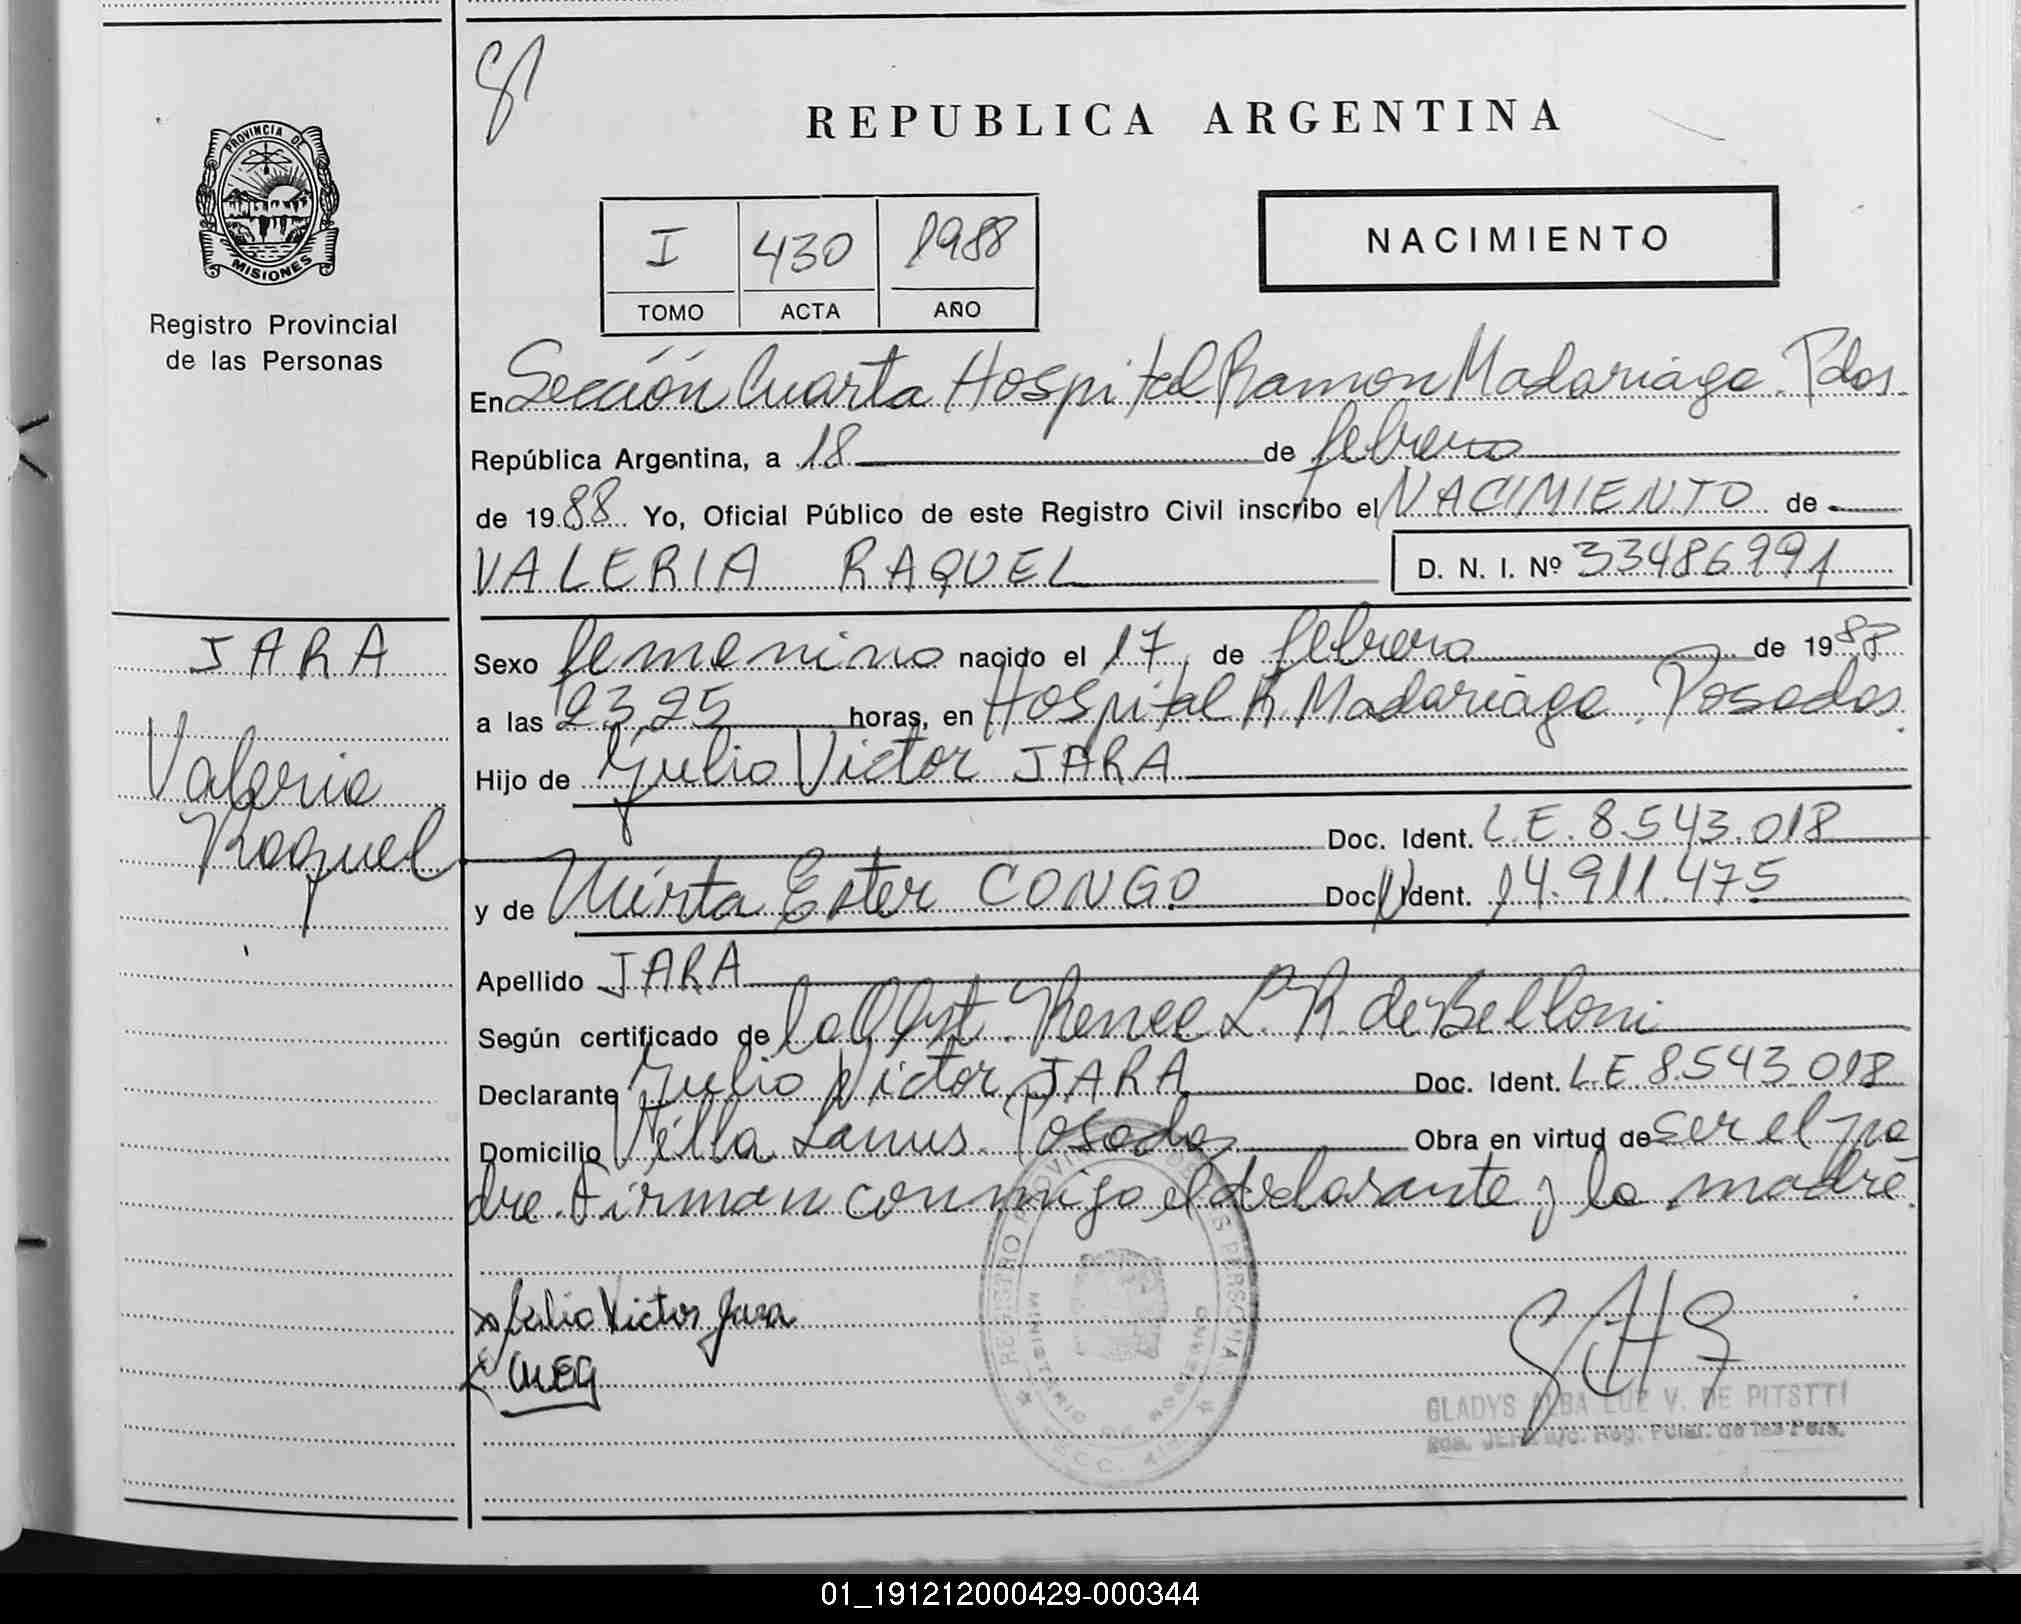 PROVINCIA DE
MISIONES
Registro Provincial
de las Personas
JARA
Valeria
Raquel
REPUBLICA ARGENTINA
I 430 1988
TOMO ACTA AÑO
NACIMIENTO
En Sección Cuarta Hospital Ramon Madariaga. Pdas.
República Argentina, a 18 de febrero
de 1988 Yo, Oficial Público de este Registro Civil inscribo el NACIMIENTO de
VALERIA RAQUEL D. N. I. Nº 33486991
Sexo femenino nacido el 17 de febrero de 1988
a las 23,25 horas, en Hospital R. Madariaga. Posadas.
Hijo de Julio Victor JARA
Doc. Ident. L.E. 8.543.018
y de Mirta Ester CONGO Doc. Ident. 14.911.475
Apellido JARA
Según certificado de la Obst. Renee L. R. de Belloni
Declarante Julio Victor JARA Doc. Ident. L.E 8.543.018
Domicilio Villa Lanus. Posadas Obra en virtud de ser el pa
dre. Firman conmigo el declarante y la madre.
Julio Victor Jara
GLADYS ALBA LUZ V. DE PITSTTI